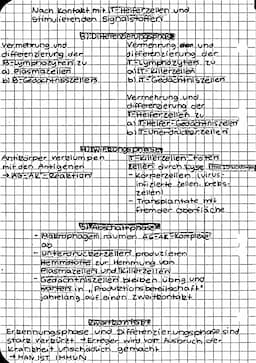 Nach Kontakt mit T-Helferzellen und
stimulierenden Signalstoffen
3) Differenzierungsphase
Vermehrung und
differenzierung der
B-Lymphozyten zu
a) Plasmazellen
b) B-Gedächtniszellen
Vermehrung und
differenzierung der
T-Lymphozyten zu
a) T-Killerzellen
b) T-Gedächtniszellen
Vermehrung und
differenzierung der
T-Helferzellen zu
a) T-Helfer-Gedächtniszellen
b) T-Unterdrückerzellen
4) Wirkungsphase
Antikörper verklumpen
mit den Antigenen
→ AG-AK-Reaktion
T-Killerzellen töten
Zellen durch Lyse
- Körperzellen (virus-
infizierte Zellen, Krebs-
zellen)
- Transplantate mit
fremder Oberfläche
5) Abschaltphase
- Makrophagen räumen AG-AK-Komplexe
ab
- Unterdrückerzellen produzieren
Hemmstoffe zur Hemmung von
Plasmazellen und Killerzellen
- Gedächtniszellen bleiben übrig und
warten in "Produktionsbereitschaft"
jahrelang auf einen Zweitkontakt
Zweitkontakt
Erkennungsphase und Differenzierungsphase sind
stark verkürzt → Erreger wird vor Ausbruch der
Krankheit unschädlich gemacht
→ MAN IST IMMUN